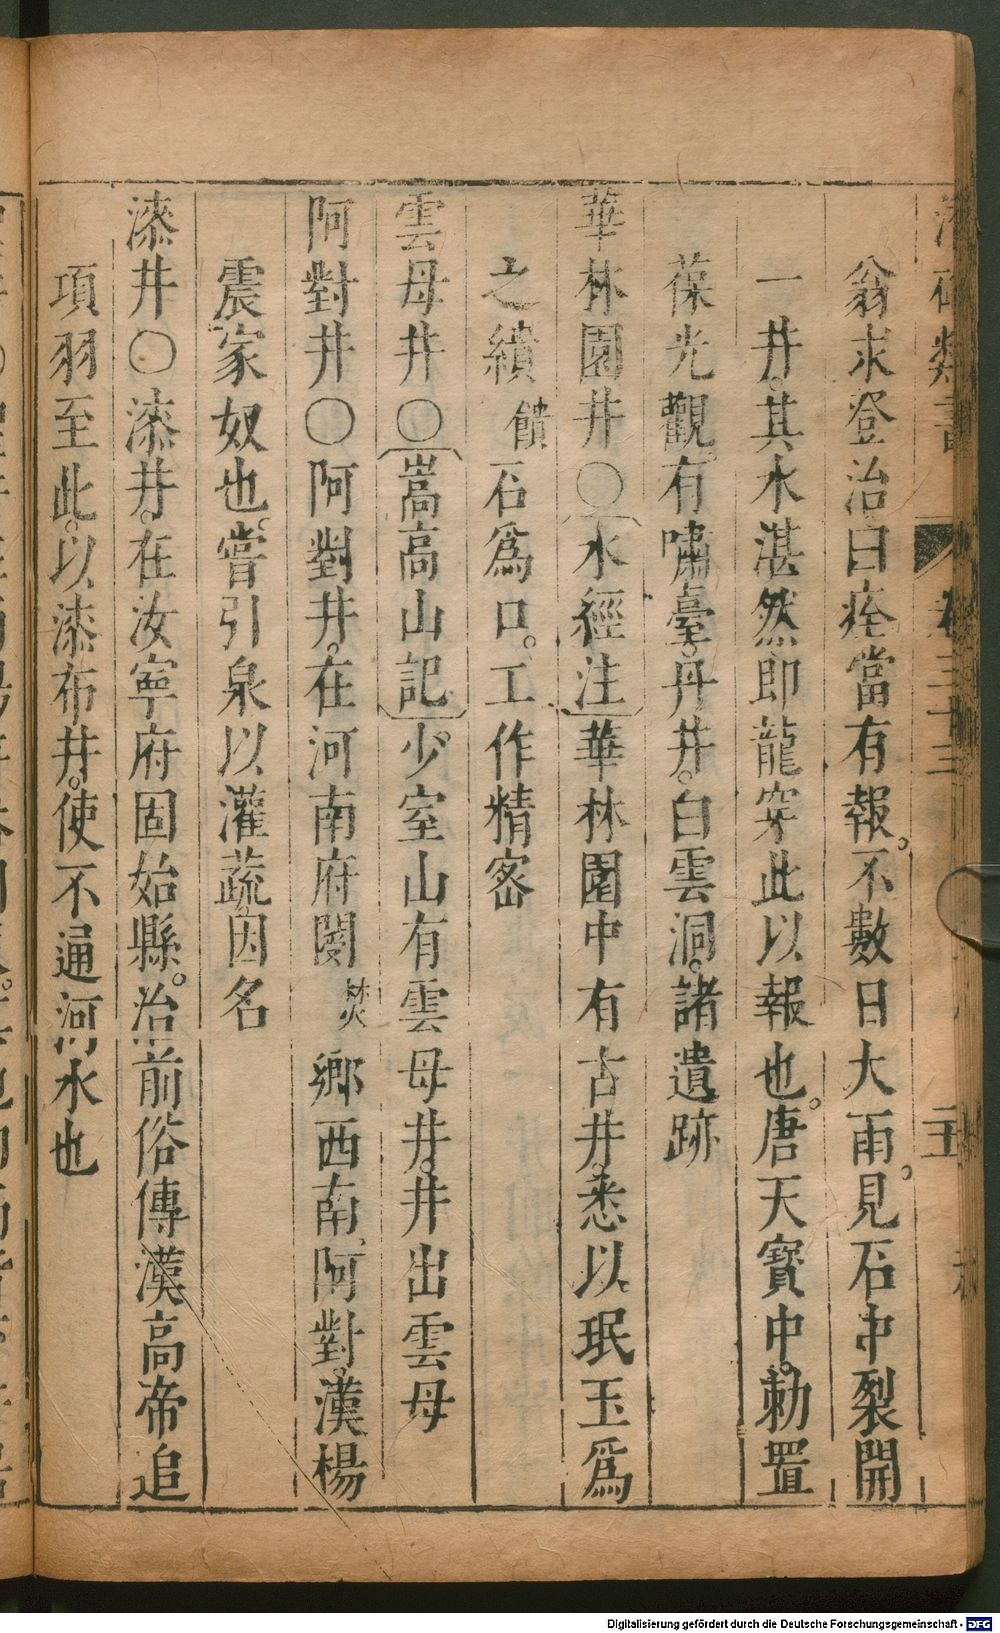 卷三十三
翁求登治曰痊當有報。不數日大雨。見石中裂開
一井。其水湛然即龍穿此以報也。唐天寶中。勅置
葆光觀有嘯臺。丹井。白雲洞。諸遺跡
華林園井〇水經注華林園中有古井。悉以珉玉爲
之纘饋石爲口。工作精密
雲母井〇嵩高山記少室山有雲母井。井出雲母
阿對井〇阿對井。在河南府閿焚鄉西南阿對。漢楊
震家奴也。嘗引泉以灌蔬。因名
漆井〇漆井。在汝寧府固始縣。治前俗傳漢高帝追
項羽至此。以漆布井。使不通河水也
Digitalisierung gefördert durch die Deutsche Forschungsgemeinschaft - DFG